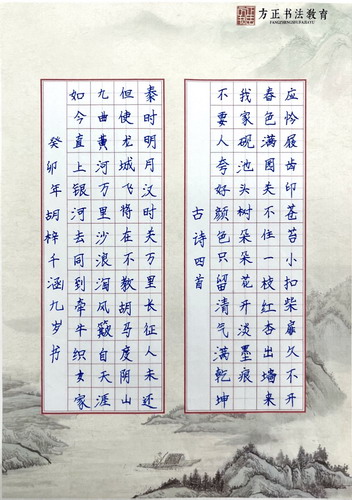 方正书法教育
FANGZHENGSHUFAJIAOYU
应怜屐齿印苍苔小扣柴扉久不开
春色满园关不住一枝红杏出墙来
我家砚池头树朵朵花开淡墨痕
不要人夸好颜色只留清气满乾坤
古诗四首
秦时明月汉时关万里长征人未还
但使龙城飞将在不教胡马度阴山
九曲黄河万里沙浪淘风簸自天涯
如今直上银河去同到牵牛织女家
癸卯年胡梓千涵九岁书